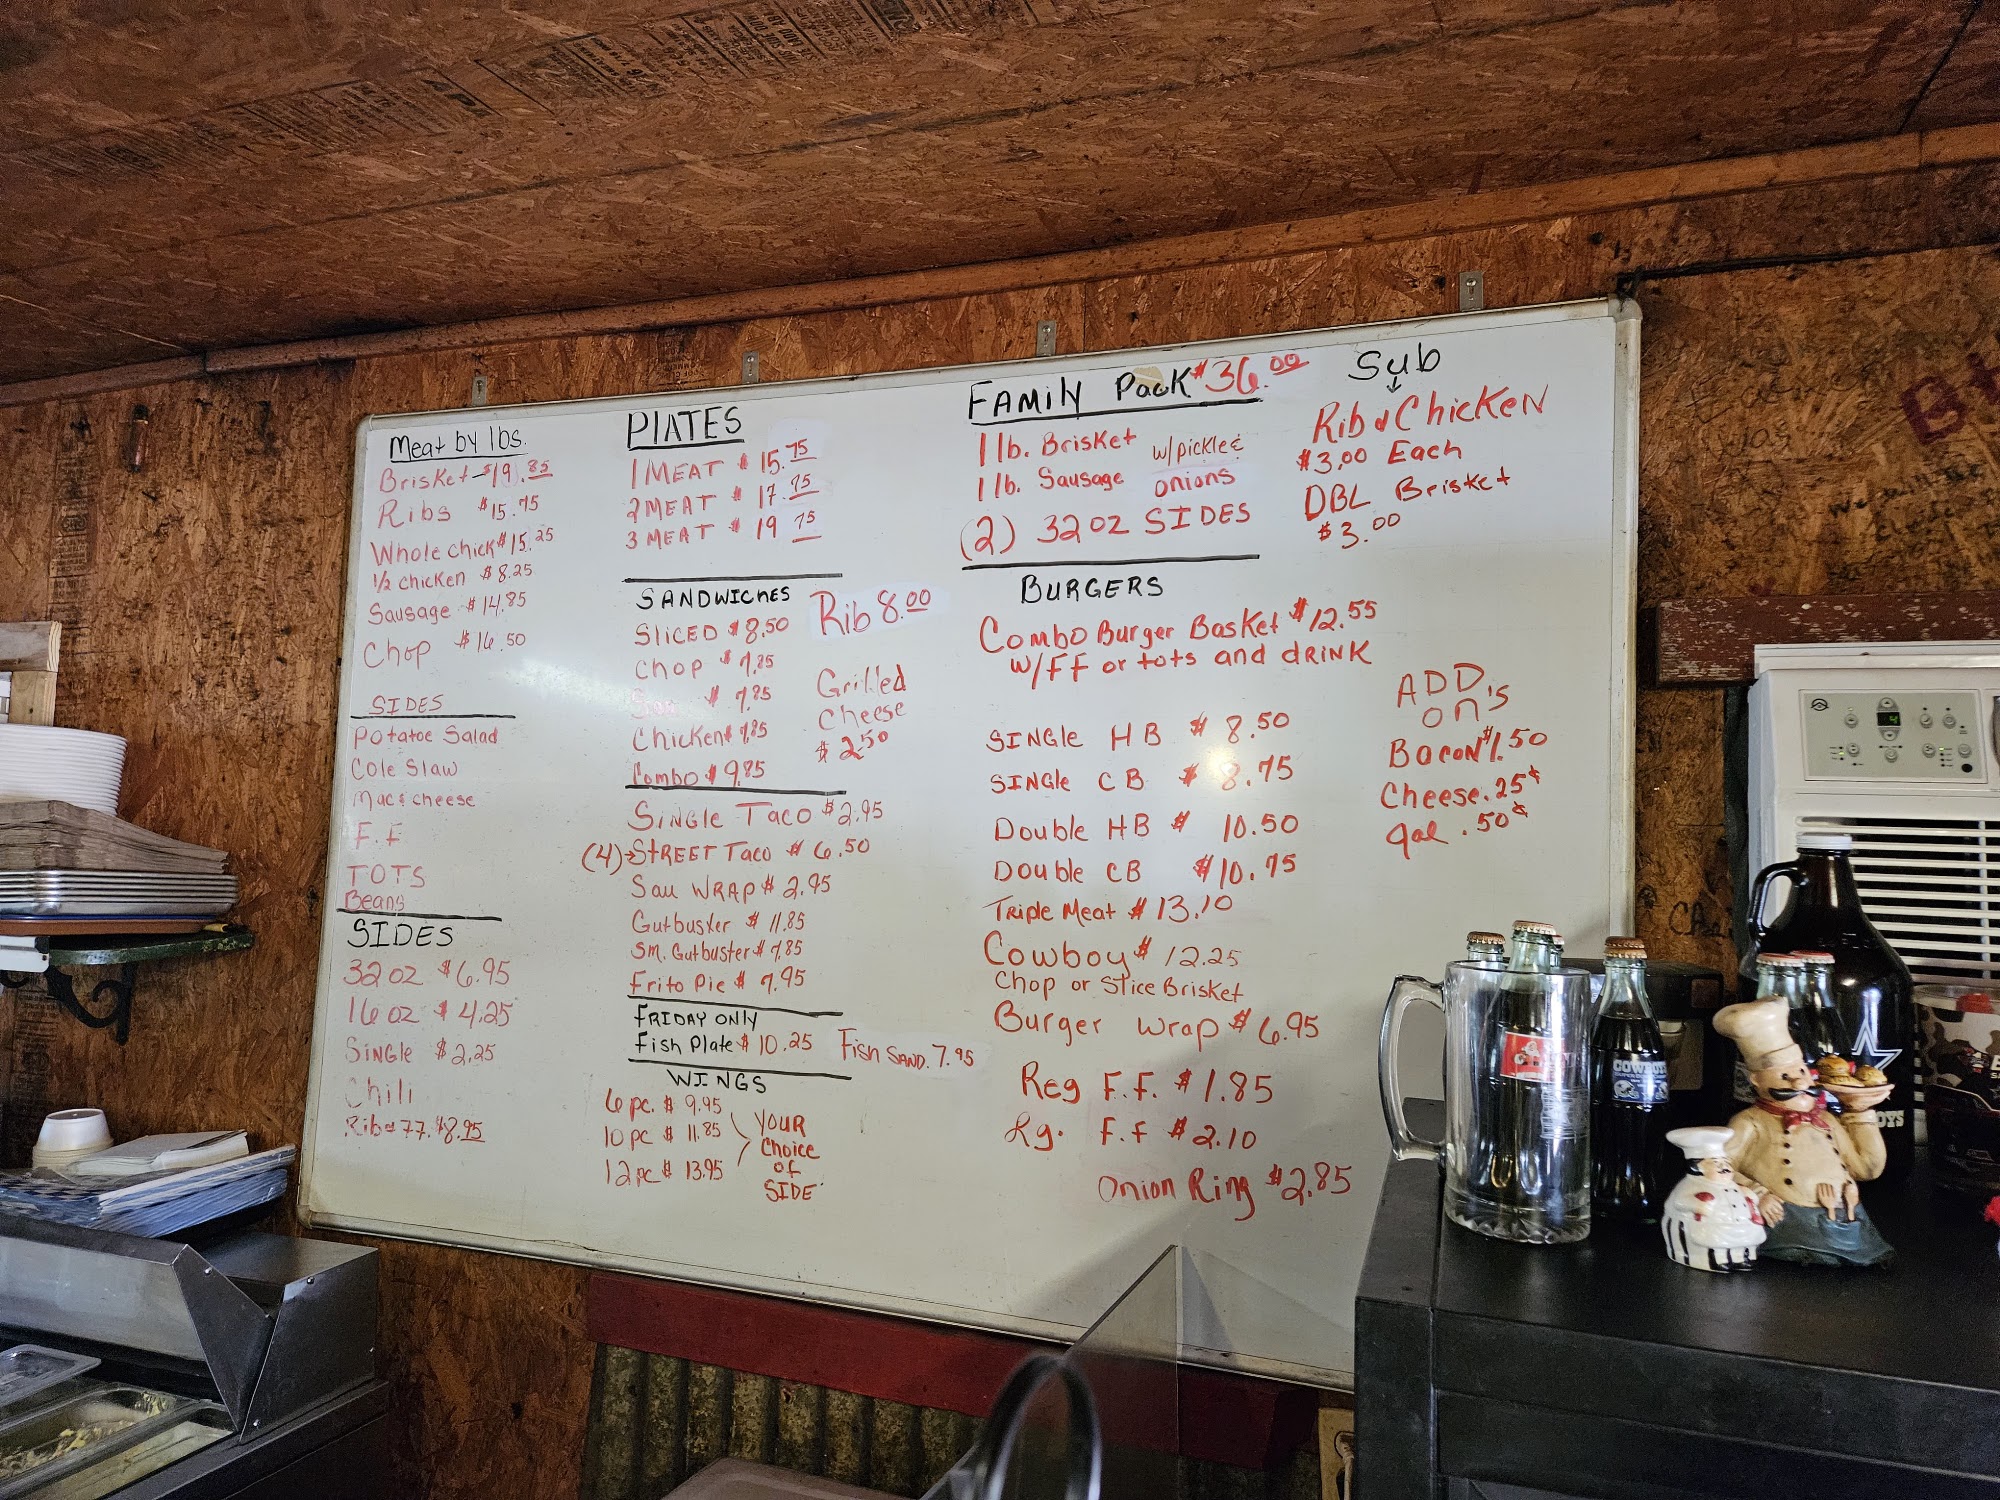 Meat by lbs.
Brisket - $19.85
Ribs $15.75
Whole Chick $15.25
1/2 chicken $8.25
Sausage $14.85
Chop $16.50
SIDES
Potatoe Salad
Cole Slaw
Mac & cheese
F.F
TOTS
Beans
SIDES
32 oz $6.95
16 oz $4.25
SiNgle $2.25
Chili
PLATES
1 MEAT $15.75
2 MEAT $17.75
3 MEAT $19.75
SANDWICHES
SLICED $8.50
Chop $7.85
$7.85
Chicken $7.85
Combo $9.85
Rib 8.00
Grilled
Cheese
$2.50
SiNgle Taco $2.95
(4) → STREET Taco $6.50
Sau WRAP $2.95
Gutbuster $11.85
Sm. Gutbuster $7.85
Frito Pie $7.95
FRIDAY ONLY
Fish Plate $10.25
Fish SAND. 7.95
WINGS
6 pc. $9.95
10 pc $11.85
12 pc $13.95
YOUR
Choice
of
SIDE
FAMILY Pack $36.00
1 lb. Brisket w/pickle &
1 lb. Sausage onions
(2) 32 oz SIDES
Sub
Rib & Chicken
$3.00 Each
DBL Brisket
$3.00
BURGERS
Combo Burger Basket $12.55
w/FF or tots and dRINK
SiNgle HB $8.50
SiNgle CB $8.75
Double HB $10.50
Double CB $10.75
Triple Meat $13.10
Cowboy $12.25
Chop or Slice Brisket
Burger Wrap $6.95
Reg F.F. $1.85
Lg. F.F $2.10
Onion Ring $2.85
ADD
on's
Bacon $1.50
Cheese .25¢
Jal .50¢
COWBOYS